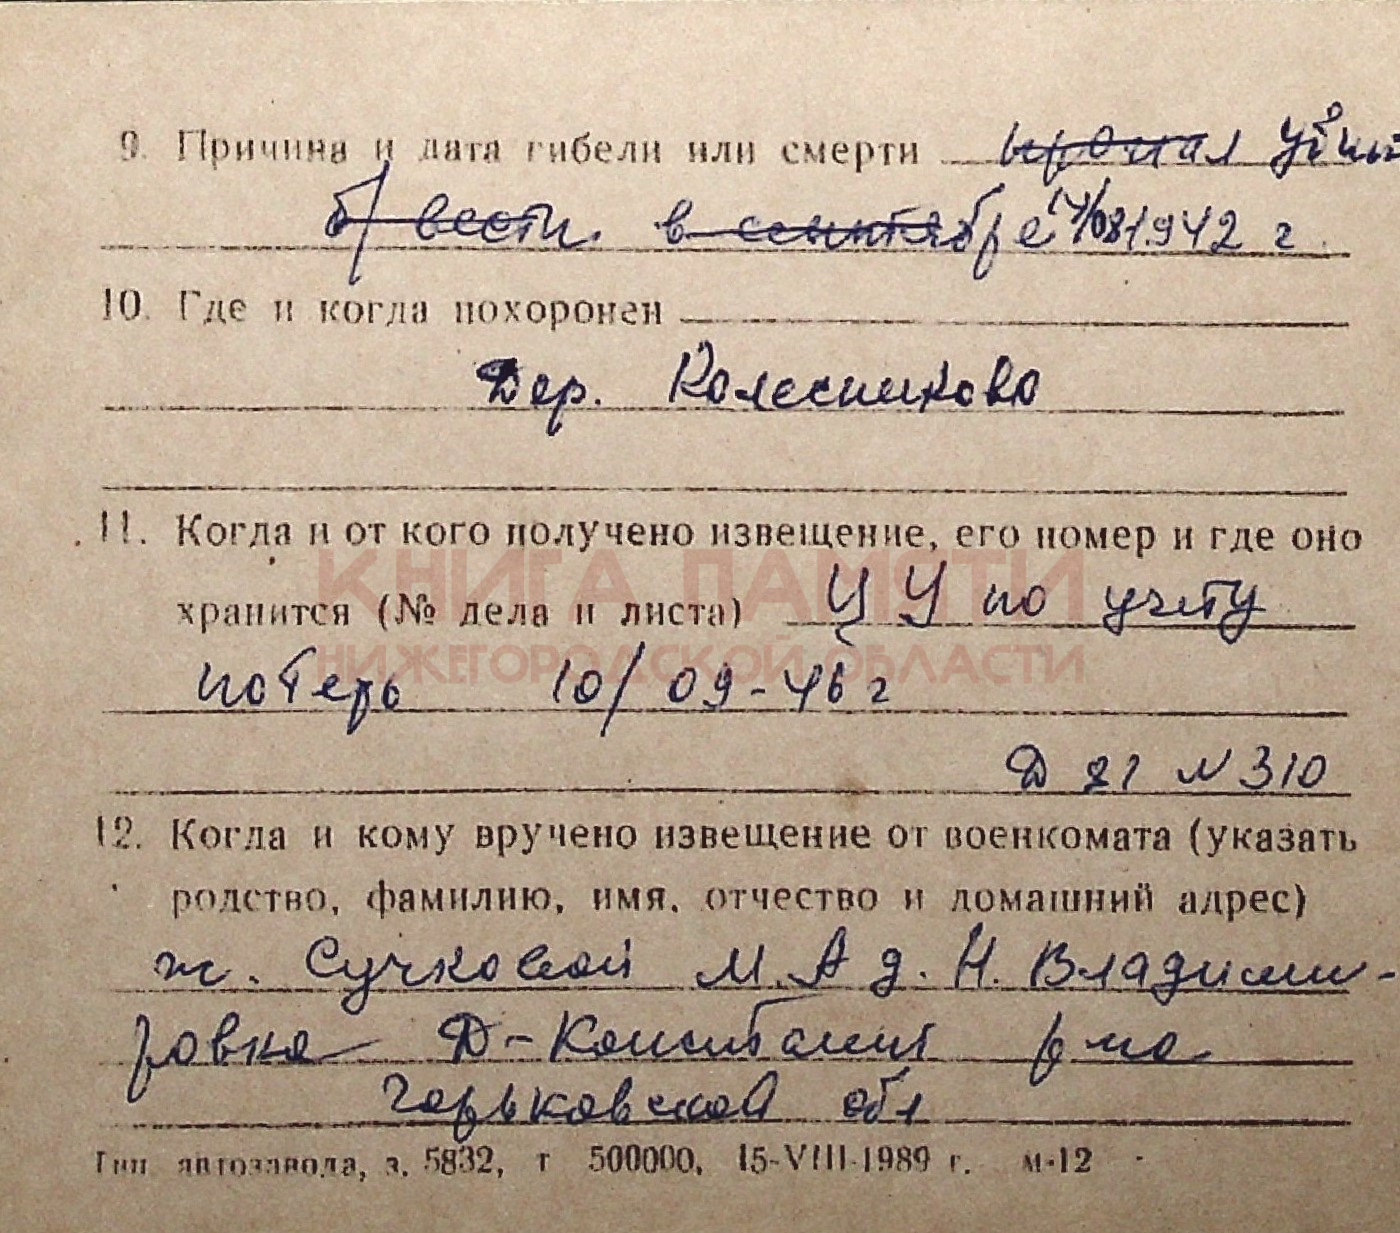 9. Причина и дата гибели или смерти пропал убит
б/вести в сентябре 14/08 1942 г.
10. Где и когда похоронен
Дер. Колесниково
11. Когда и от кого получено извещение, его номер и где оно
КНИГА ПАМЯТИ
хранится (№ дела и листа) ЦУ по учету
НИЖЕГОРОДСКОЙ ОБЛАСТИ
потерь 10/09-46 г
Д 21 N 310
12. Когда и кому вручено извещение от военкомата (указать
родство, фамилию, имя, отчество и домашний адрес)
ж. Сучковой М. А д. Н. Владими-
ровка Д-Константи р-на
Горьковской обл
Тип. автозавода, з. 5832, т 500000, 15-VIII-1989 г. м-12